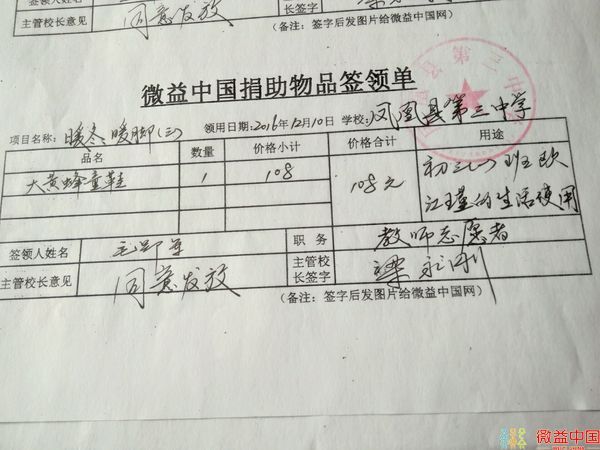 主管校长意见 同意发放 长签字
(备注：签字后发图片给微益中国网)
微益中国捐助物品签领单
项目名称：暖冬暖脚(二) 领用日期：2016年12月10日 学校：凤凰县第三中学
品名 数量 价格小计 价格合计 用途
大黄蜂童鞋 1 108 108元 初三 班欧
江瑾的生活使用
签领人姓名 职务 教师志愿者
主管校长意见 同意发放 主管校长签字 梁永
(备注：签字后发图片给微益中国网)
微益中国